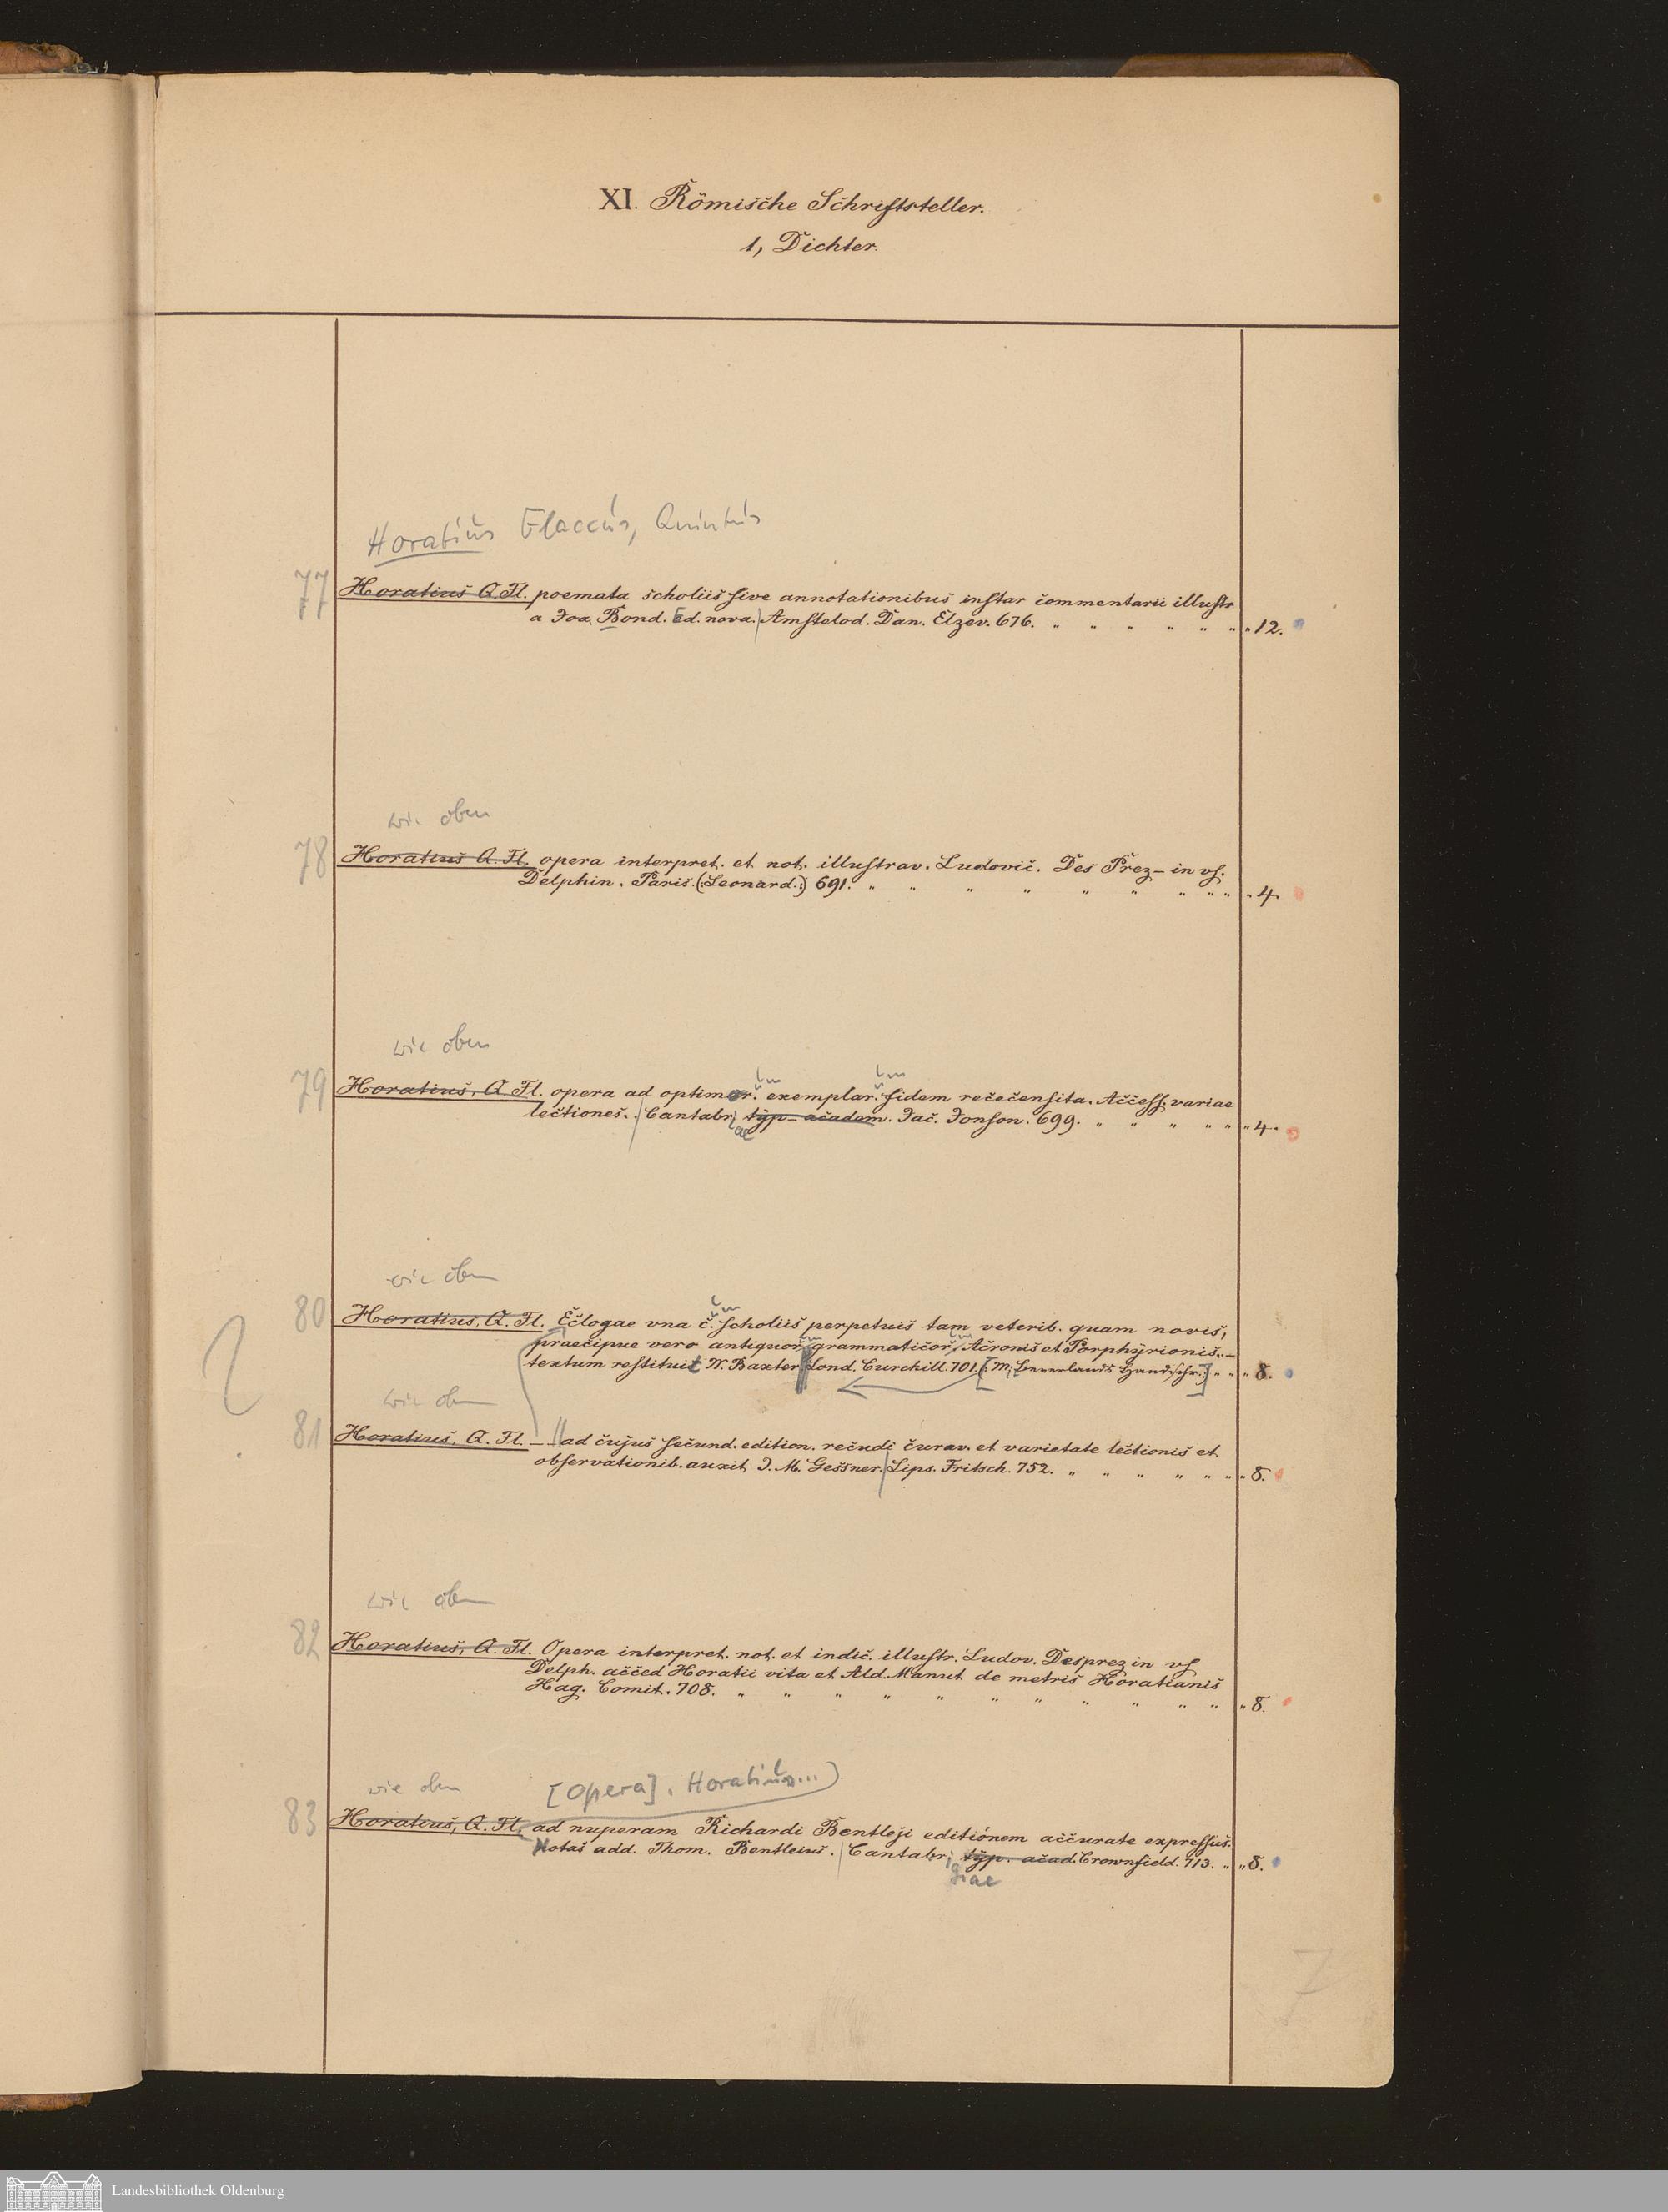 XI. Römische Schriftsteller.
1, Dichter.
Horatius Flaccus, Quintus
77 Horatius Q. Fl. poemata scholiis sive annotationibus instar commentarii illustr
a Joa. Bond. Ed. nova. Amstelod. Dan. Elzev. 676. " " " " " " " 12.
wie oben
78 Horatius Q. Fl. opera interpret. et not. illustrav. Ludovic. Des Prez – in vs.
Delphin. Paris. (: Leonard. :) 691. " " " " " " " " " " 4.
wie oben
79 Horatius, Q. Fl. opera ad optimor. um exemplar. ium fidem rececensita. Access. variae
lectiones. Cantabr. iae typ – academ. Jac. Jonson. 699. " " " " " " 4.
wie oben
80 Horatius, Q. Fl. Eclogae vna c. um scholiis perpetuis tam veterib. quam novis,
praecipue vero antiquor. um grammaticor. um, Acronis et Porphyrionis. –
textum restituit W. Baxter Lond. Curchill. 701. [(: M. Beverlands Handschr. :)] " " " 8.
wie oben
81 Horatius, Q. Fl. – – ad cujus secund. edition. recudi curav. et varietate lectionis et
observationib. auxit J. M. Gessner. Lips. Fritsch. 752. " " " " " " " 8.
wie oben
82 Horatius, Q. Fl. Opera interpret. not. et indic. illustr. Ludov. Desprez in vs
Delph. acced Horatii vita et Ald. Manut de metris Horatianis
Hag. Comit. 708. " " " " " " " " " " " " 8.
wie oben [Opera]. Horatius...)
83 Horatius, Q. Fl. ad nuperam Richardi Bentleji editiónem accurate expressus.
Notas add. Thom. Bentleius. Cantabr. giae typ. acad. Crownfield. 713. " " 8.
7
Landesbibliothek Oldenburg